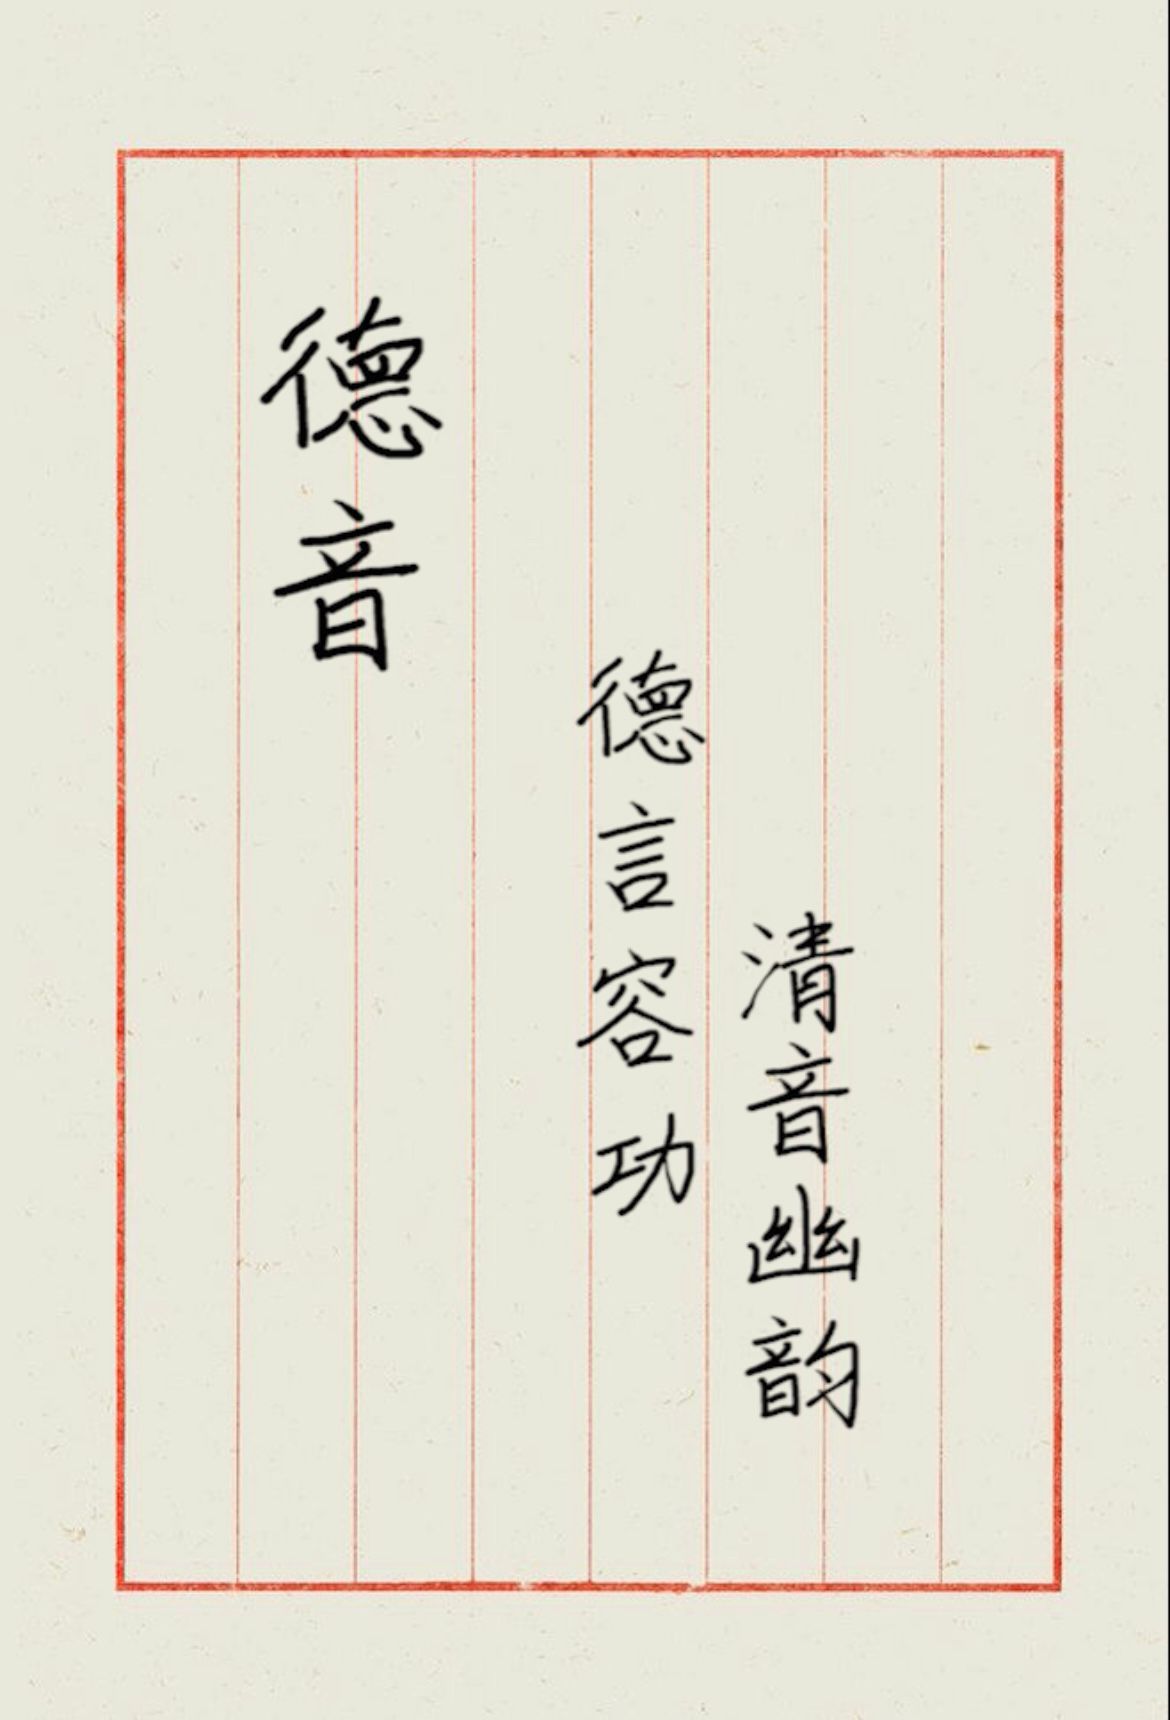 清音幽韵
德言容功
德音